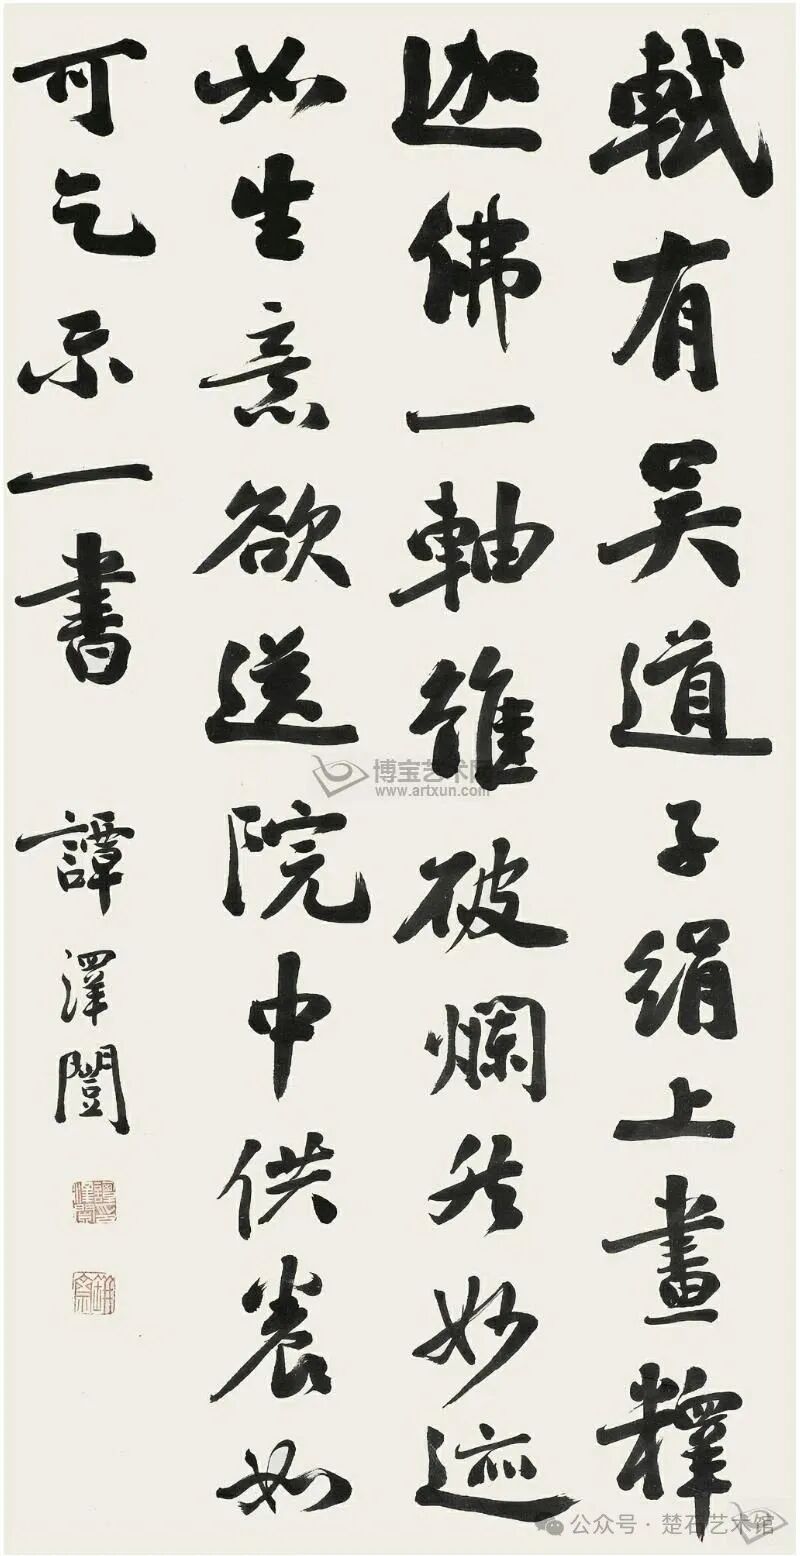 軾有吳道子絹上畫釋
迦佛一軸雖破爛然妙迹
如生意欲送院中供養如
可乞示一書 譚澤闓
博宝艺术网
www.artxun.com
公众号·楚石艺术馆